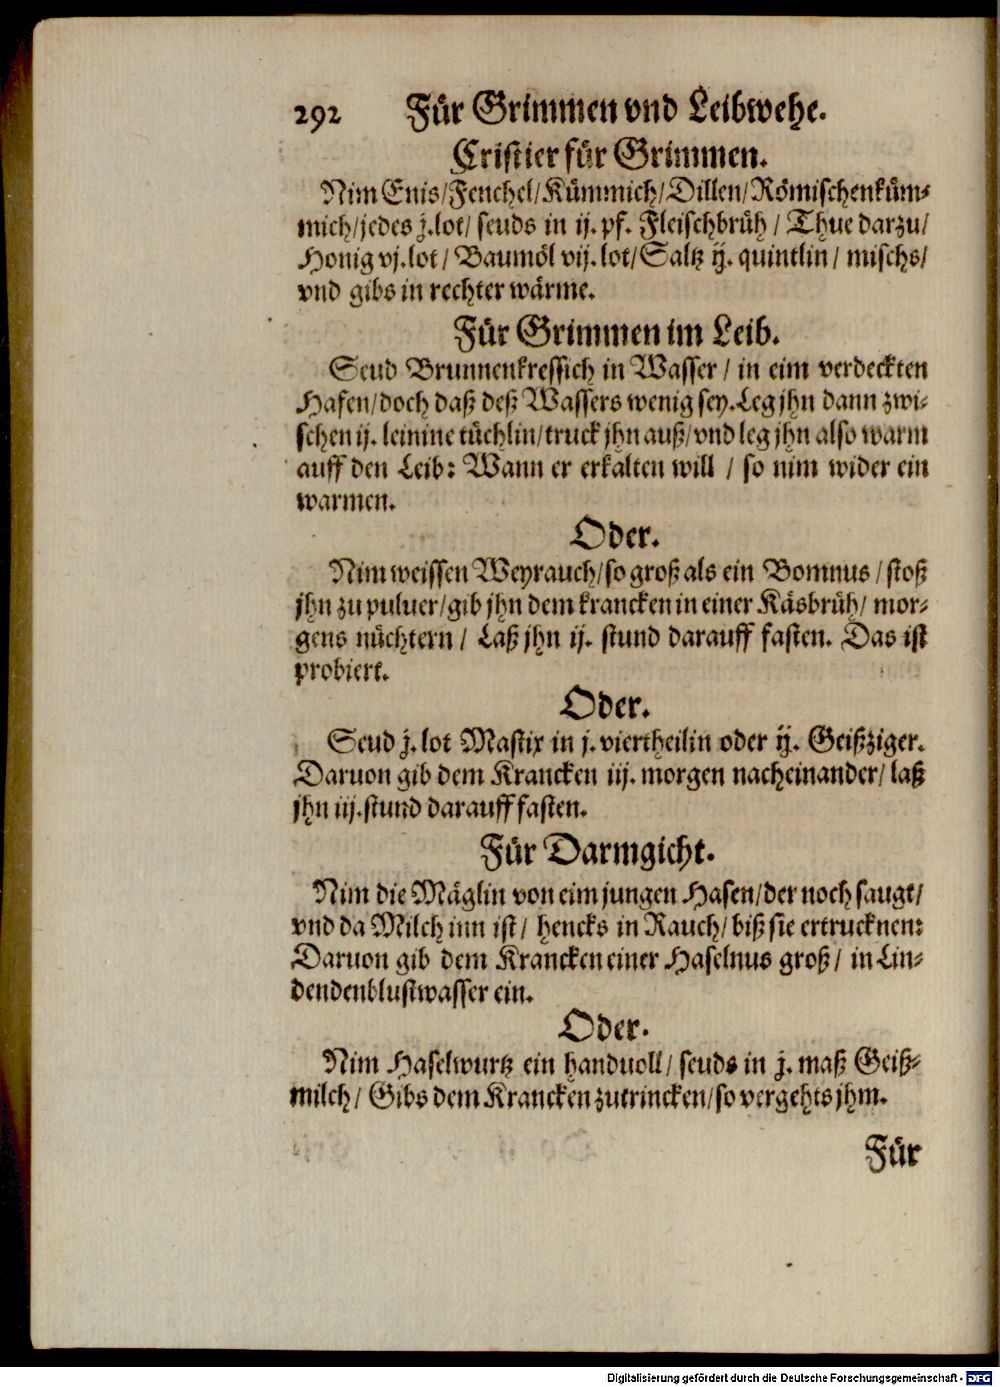 292 Für Grimmen vnd Leibwehe.
Cristier für Grimmen.
Nim Enis/Fenchel/Kümmich/Dillen/Römischenküm-
mich/jedes j.lot/ seuds in ij. pf. Fleischbrüh / Thue darzu/
Honig vj.lot/ Baumöl vij.lot/Saltz ij. quintlin/ mischs/
vnd gibs in rechter wärme.
Für Grimmen im Leib.
Seud Brunnenkressich in Wasser / in eim verdeckten
Hafen/doch daß deß Wassers wenig sey.Leg jhn dann zwi-
schen ij. leinine tüchlin/truck jhn auß/vnd leg jhn also warm
auff den Leib: Wann er erkalten will / so nim wider ein
warmen.
Oder.
Nim weissen Weyrauch/so groß als ein Bomnus/stoß
jhn zu puluer/gib jhn dem krancken in einer Käsbrüh/ mor-
gens nüchtern / Laß jhn ij. stund darauff fasten. Das ist
probiert.
Oder.
Seud j. lot Mastix in j. viertheilin oder ij. Geißziger.
Daruon gib dem Krancken iij. morgen nacheinander/ laß
jhn iij.stund darauff fasten.
Für Darmgicht.
Nim die Mäglin von eim jungen Hasen/der noch saugt/
vnd da Milch inn ist/ hencks in Rauch/biß sie ertrucknen:
Daruon gib dem Krancken einer Haselnus groß/ in Lin-
dendenblustwasser ein.
Oder.
Nim Haselwurtz ein handuoll/ seuds in j. maß Geiß-
milch/ Gibs dem Krancken zutrincken/so vergehts jhm.
Für
Digitalisierung gefördert durch die Deutsche Forschungsgemeinschaft - DFG